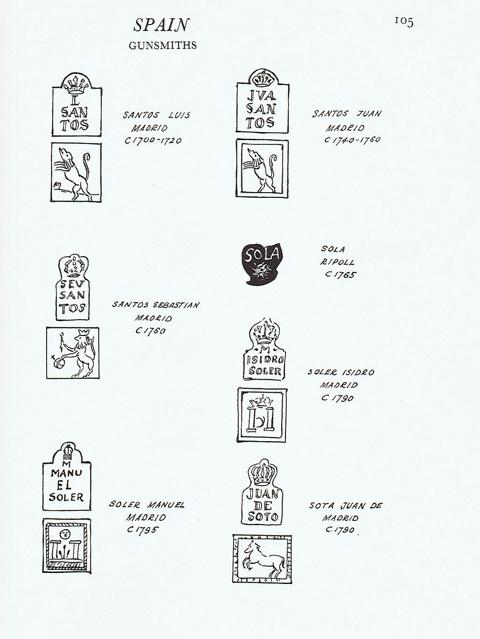 SPAIN
105
GUNSMITHS
L
SAN
TOS
SANTOS LUIS
MADRID
C 1700-1720
JVA
SAN
TOS
SANTOS JUAN
MADRID
C 1740-1760
SEV
SAN
TOS
SANTOS SEBASTIAN
MADRID
C 1760
SOLA
SOLA
RIPOLL
C 1765
M
ISIDRO
SOLER
SOLER ISIDRO
MADRID
C 1790
M
MANU
EL
SOLER
SOLER MANUEL
MADRID
C 1795
JUAN
DE
SOTO
SOTA JUAN DE
MADRID
C 1790.